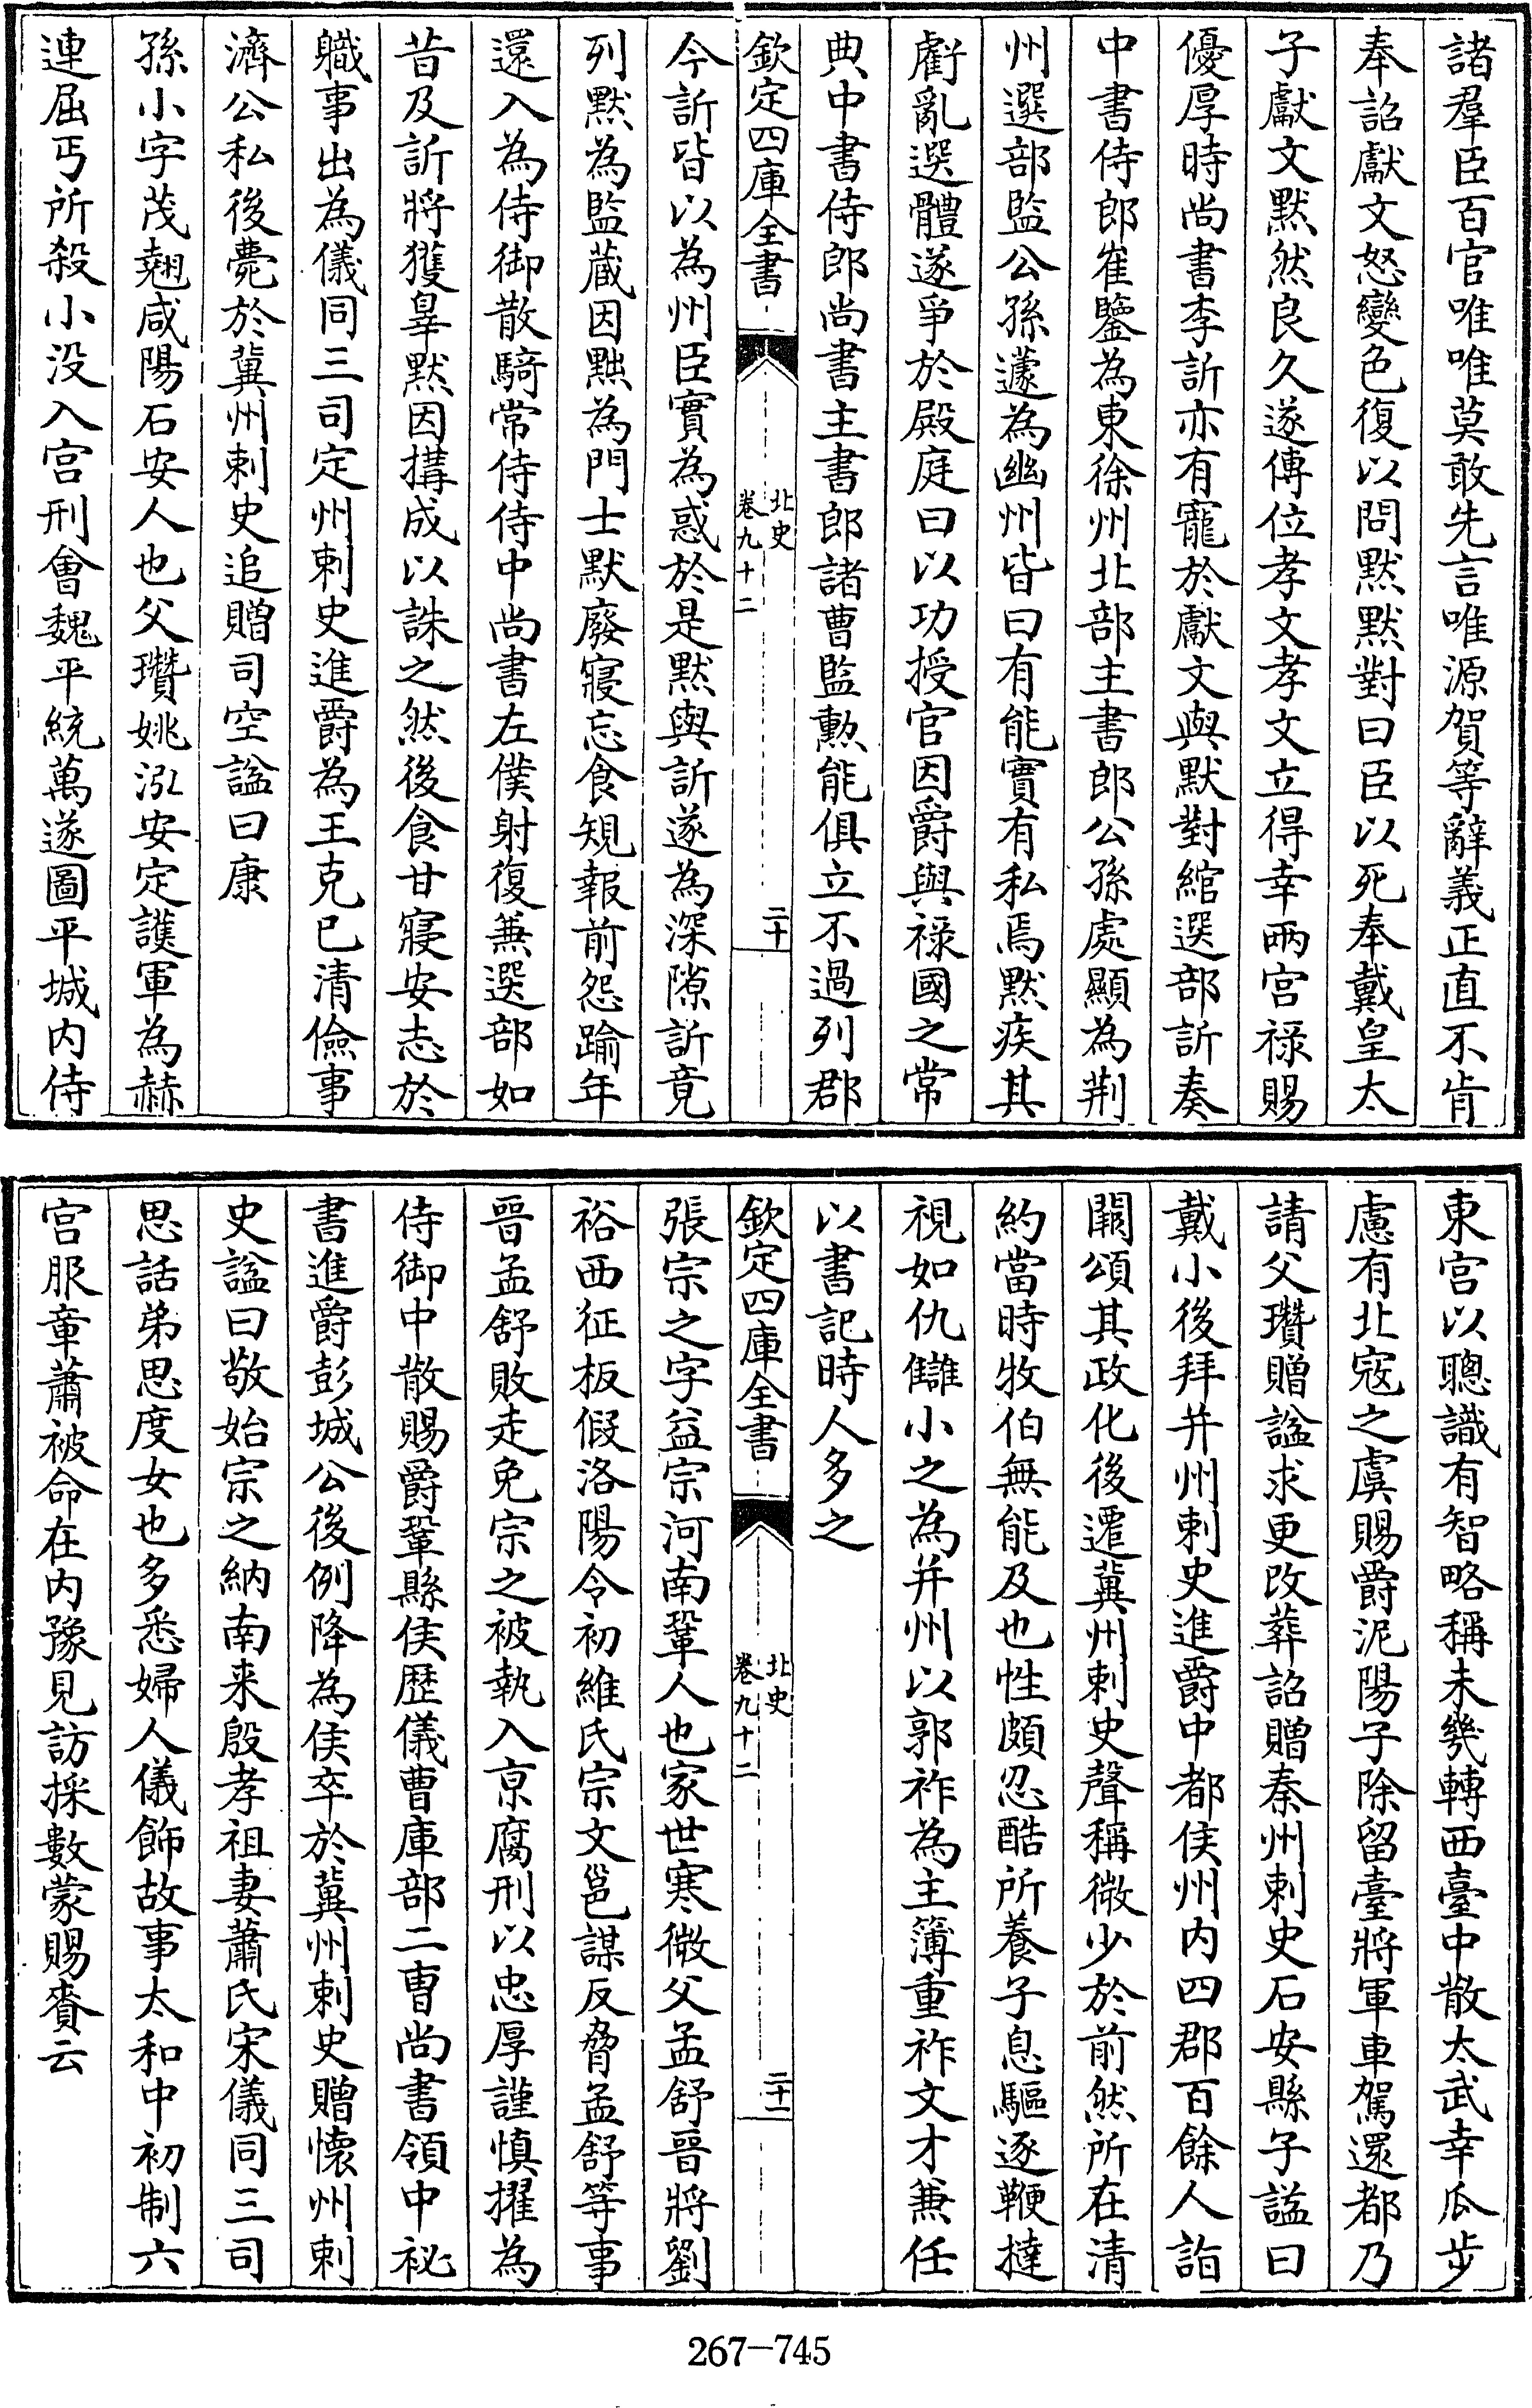 諸羣臣百官唯唯莫敢先言唯源賀等辭義正直不肯
奉詔獻文怒變色復以問黙黙對曰臣以死奉戴皇太
子獻文黙然良久遂傳位孝文孝文立得幸兩宮禄賜
優厚時尚書李訢亦有寵於獻文與默對綰選部訢奏
中書侍郎崔鑒為東徐州北部主書郎公孫處顯為荆
州選部監公孫蘧為幽州皆曰有能實有私焉黙疾其
虧亂選體遂爭於殿庭曰以功授官因爵與禄國之常
典中書侍郎尚書主書郎諸曹監勲能俱立不過列郡
欽定四庫全書
北史
卷九十二
二十
今訢皆以為州臣實為惑於是黙與訢遂為深隙訢竟
列黙為監藏因黜為門士默廢寢忘食規報前怨踰年
還入為侍御散騎常侍侍中尚書左僕射復兼選部如
昔及訢將獲辠黙因搆成以誅之然後食甘寢安志於
職事出為儀同三司定州刺史進爵為王克已清儉事
濟公私後薨於冀州刺史追贈司空諡曰康
孫小字茂翹咸陽石安人也父瓚姚泓安定護軍為赫
連屈丐所殺小没入宫刑會魏平統萬遂圖平城内侍
東宫以聰識有智略稱未幾轉西臺中散太武幸瓜步
慮有北寇之虞賜爵泥陽子除留臺將軍車駕還都乃
請父瓚贈諡求更改葬詔贈秦州刺史石安縣子諡曰
戴小後拜并州刺史進爵中都侯州内四郡百餘人詣
闕頌其政化後遷冀州刺史聲稱微少於前然所在清
約當時牧伯無能及也性頗忍酷所養子息驅逐鞭撻
視如仇讎小之為并州以郭祚為主簿重祚文才兼任
以書記時人多之
欽定四庫全書
北史
卷九十二
二十一
張宗之字益宗河南鞏人也家世寒微父孟舒晋將劉
裕西征板假洛陽令初維氏宗文邕謀反脅孟舒等事
晋孟舒敗走免宗之被執入京腐刑以忠厚謹慎擢為
侍御中散賜爵鞏縣侯歴儀曹庫部二曹尚書領中祕
書進爵彭城公後例降為侯卒於冀州刺史贈懷州刺
史諡曰敬始宗之納南来殷孝祖妻蕭氏宋儀同三司
思話弟思度女也多悉婦人儀飾故事太和中初制六
宫服章蕭被命在内豫見訪採數蒙賜賚云
267-745